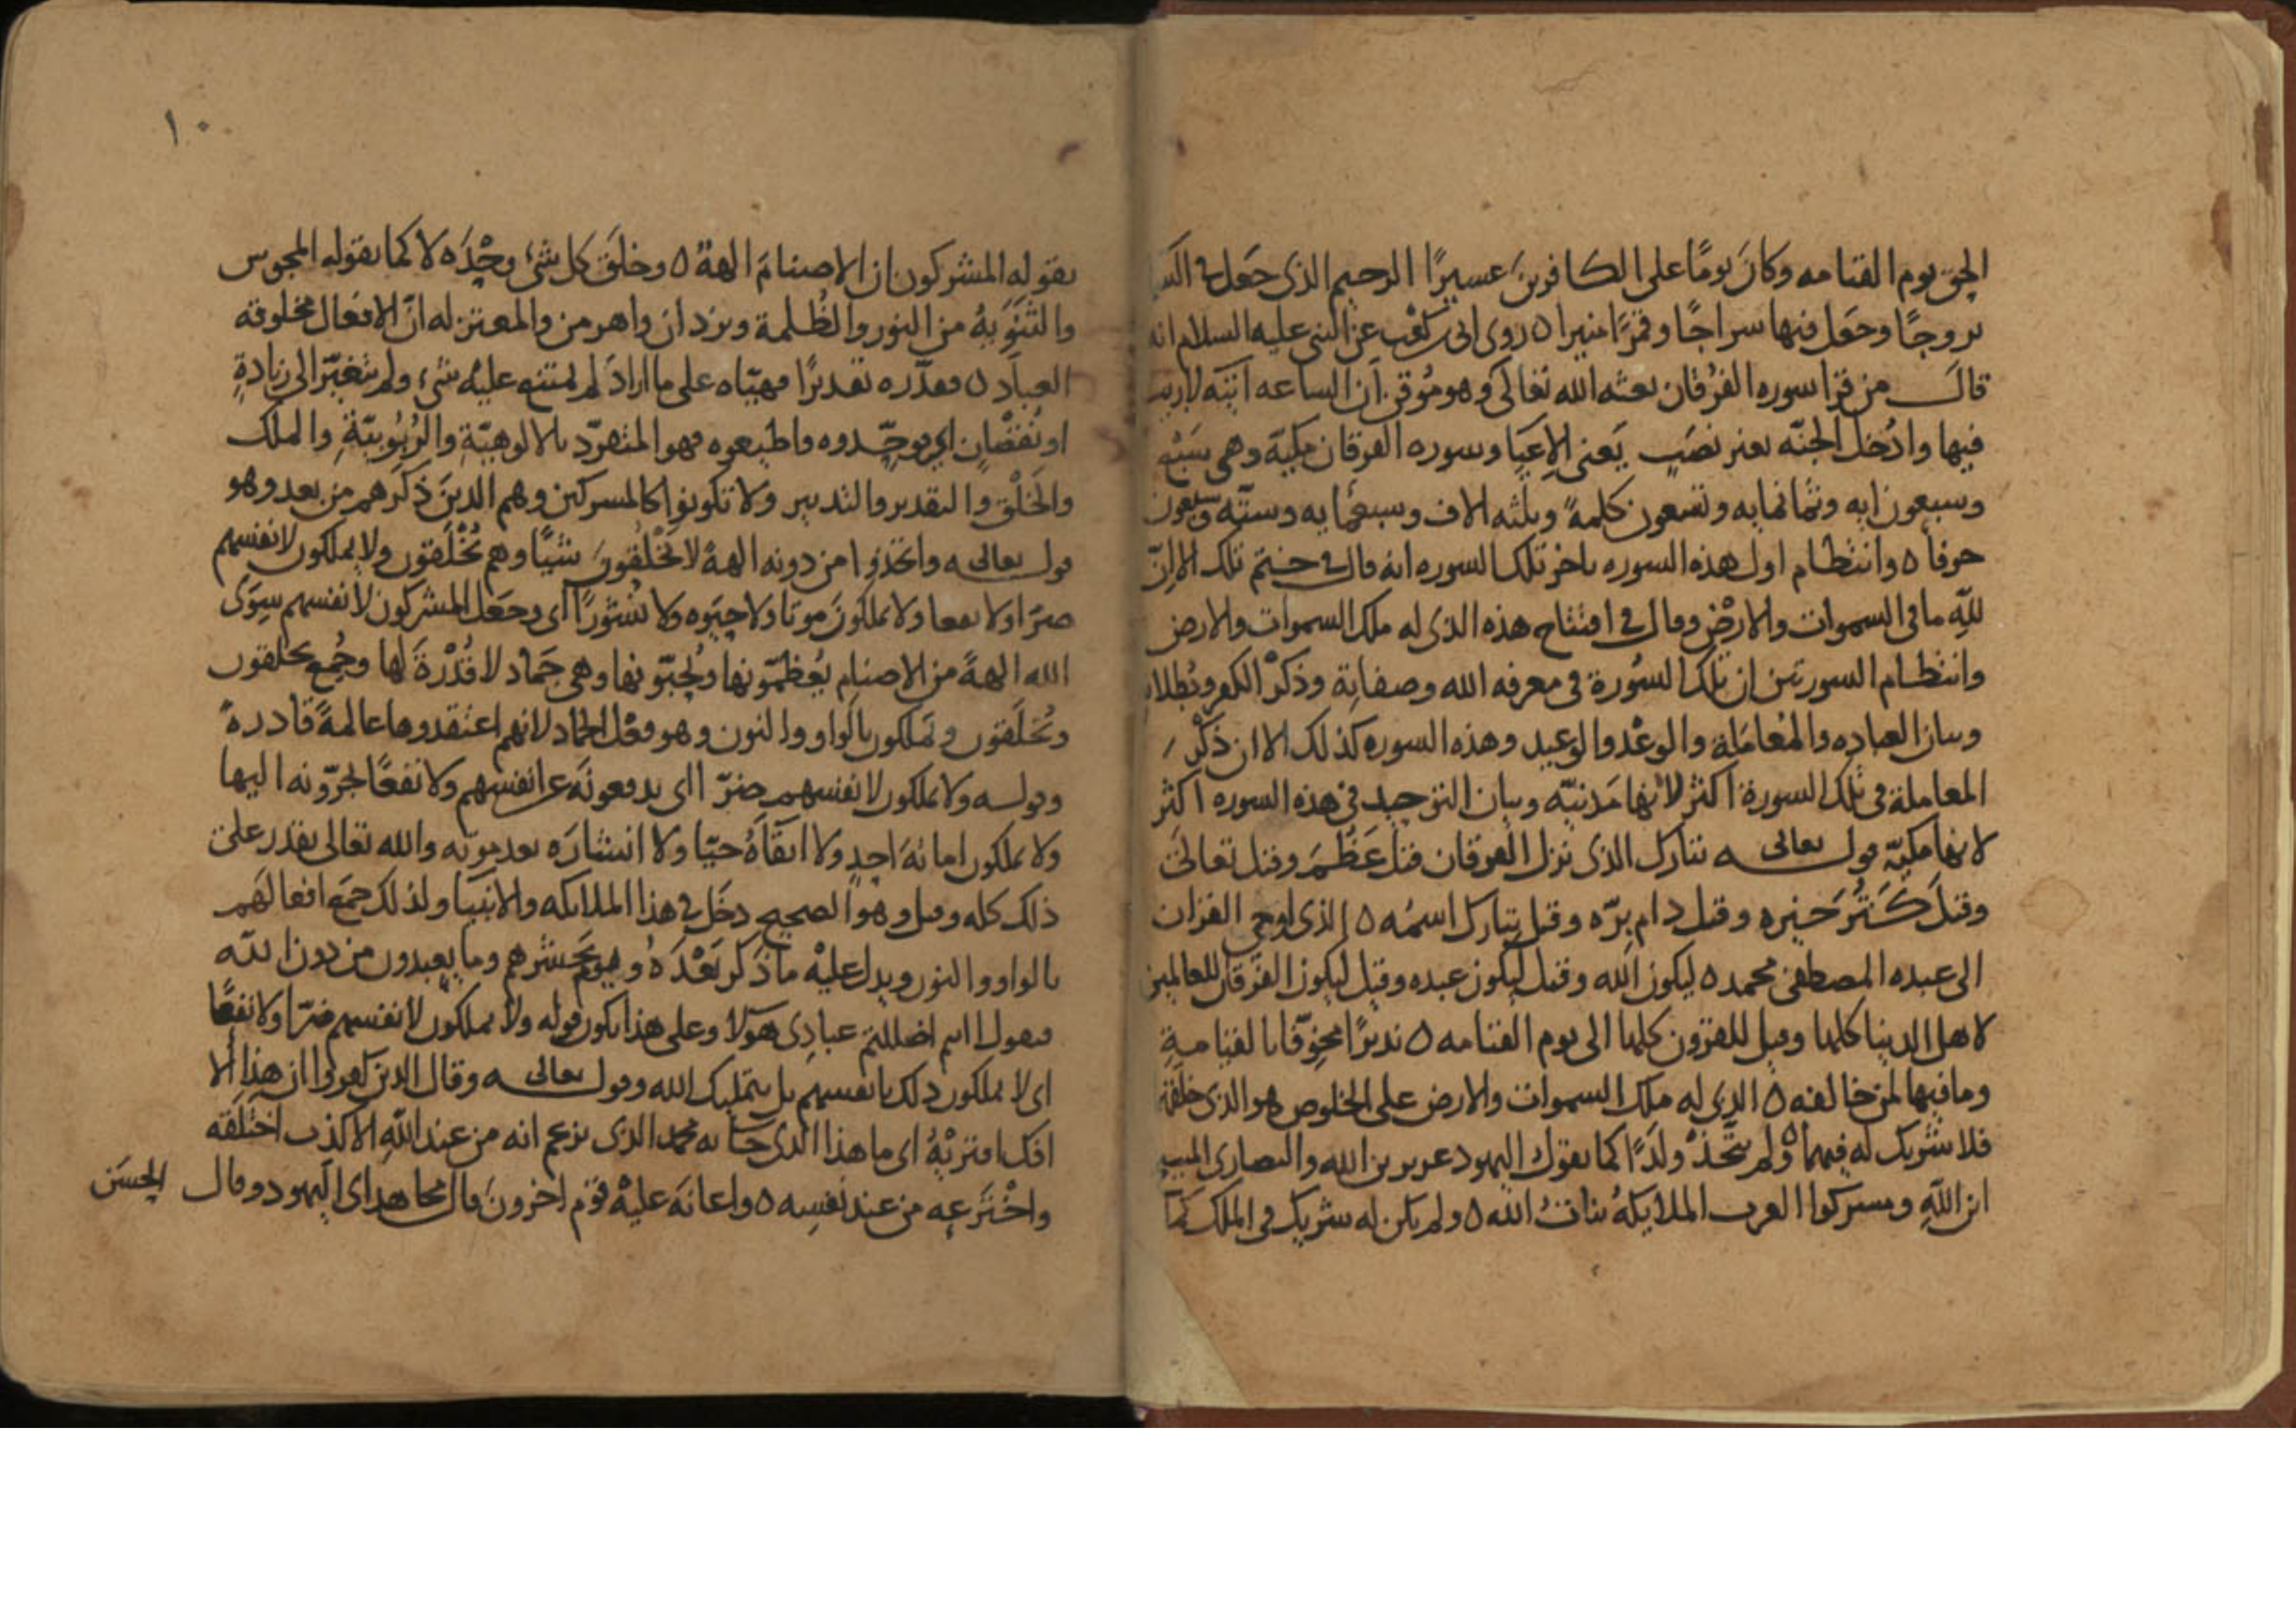 الحق يوم القيامه وكان يومًا على الكافرين عسيرًا الرحيم الذى جعل فى السما
بروجًا وجعل فيها سراجًا وقمرًا منيرا ٥ روى ابى بن كعب عن النبى عليه السلام انه
قال من قرا سوره الفرقان بعثه الله تعالى وهو مُوقن ان الساعه اتيَه لا ريب
فيها وادُخل الجنّه بغير نصَب يَعنى الاِعيَا وسوره الفرقان مكيّة وهى سَبْع
وسبعون ايه وثمانمايه وتسعون كلمةً وثلثه الاف وسبعمايه وستّه وسبعون
حرفًا ٥ وانتظام اول هذه السوره باخر تلك السوره انه قال فى ختم تلك الا اِنّ
للهِ ما فى السموات والارْض وقال فى افتتاح هذه الذى له ملك السموات والارض
وانتظام السورتين ان تلك السُورة فى معرفه الله وصفاته وذكْر الكفر وبُطلانه
وبيان العباده والمُعامَلة والوعْد والوعيد وهذه السوره كذلك الا ان ذكْر
المعاملة فى تلك السورة اكثر لانها مَدنيّه وبيان التوحيد فى هذه السوره اكثر
لانها مكيّه قوله تعالى تبارك الذى نزل الفرقان قيل عَظُمَ وقيل تعالىَ
وقيلَ كَثُرَ خيره وقيل دام برّه وقيل تبارك اسمُه ٥ الذى اوحى القران
الى عبده المصطفى محمد ٥ ليكون الله وقيل ليكون عبده وقيل ليكون الفرقان للعالمين
لاهل الدنيا كلها وقيل للقرون كلها الى يوم القيامه ٥ نذيرًا مخوّفًا بالقيامةِ
وما فيها لمن خالفه ٥ الذى له ملك السموات والارض على الخلوص هو الذى خلقه
فلا شريك له فيهما ٥ ولم يتّخذْ ولدًا كما يقول اليهود عزير بن الله والنصارى المسيح
ابن اللهِ ومشركوا العرب الملايكةُ بناتُ الله ٥ ولم يكن له شريك فى الملك كما
يقوله المشركون ان الاصنامَ الهة ٥ وخلَق كل شىء وحْدَه لا كما يقوله المجوس
والثَنَوِيةُ من النور والظُلمة ويزدان واهرمن والمعتزله ان الافعال مخلوقه
العباد ٥ فقدّره تقديرًا فهيّاه على ما ارادَ لم يمتنع عليْه شىء ولم يتغيّر الى زيادةٍ
او نُقصْانٍ اى فوحّدوه واطيعوه فهو المتفرّد بالالوهيّةِ والرُبُوبيّةِ والملك
والخَلْق والتقدير والتدبير ولا تكونوا كالمشركين وهم الذينَ ذكَرهم من بعد وهو
قوله تعالى واتخذوا من دونه الهةً لا يَخْلُقونَ شيًا وهم يُخْلَقون ولا يملكون لانفسهم
ضرًا ولا نفعا ولا يملكونَ موتا ولا حيَوه ولا نُشورًا اى وجعَل المشركون لانفسهم سِوَى
الله الهةً من الاصنام يُعظّمونها ويُحبّونها وهى جَماد لا قُدْرةَ لها وجُمع يخلقون
ويُخلَقون ويملكون بالواو والنون وهو فعْل الجماد لانهم اعتقدوها عالمةً قادرةً
وقوله ولا يملكون لانفسهم ضرّا اى يدفعونَه عن انفسهم ولا نفعًا يجرّونه اليها
ولا يملكون اماتَهَ احدٍ ولا ابقآهُ حيّا ولا انشارَه بعد موته والله تعالى يقدر على
ذلك كله وقيل وهو الصحيح دخَل فى هذا الملايكه والانبيا ولذلك جمَع افعالهَم
بالواو والنون ويدل عليْه ما ذكَر بَعْدَهُ ويوم يَحشرهم وما يعبدون من دون الله
فيقول اانتم اضللتم عبادى هَولا وعلى هذا يكون قوله ولا يملكون لانفسهم ضرّا ولا نفعًا
اى لا يملكون ذلك بانفسهم بل بتمليك الله وقوله تعالى وقال الذين كفروا ان هذا الا
افك افتريْهُ اى ما هذا الذى جآ به محمد الذى يزعم انه من عند اللهِ الا كذب اختلقه
واخْتَرعه من عند نفسِه ٥ واعانَه عليْه قوْم اخرونَ قال مجاهد اى اليهود وقال الحسَن
١٠